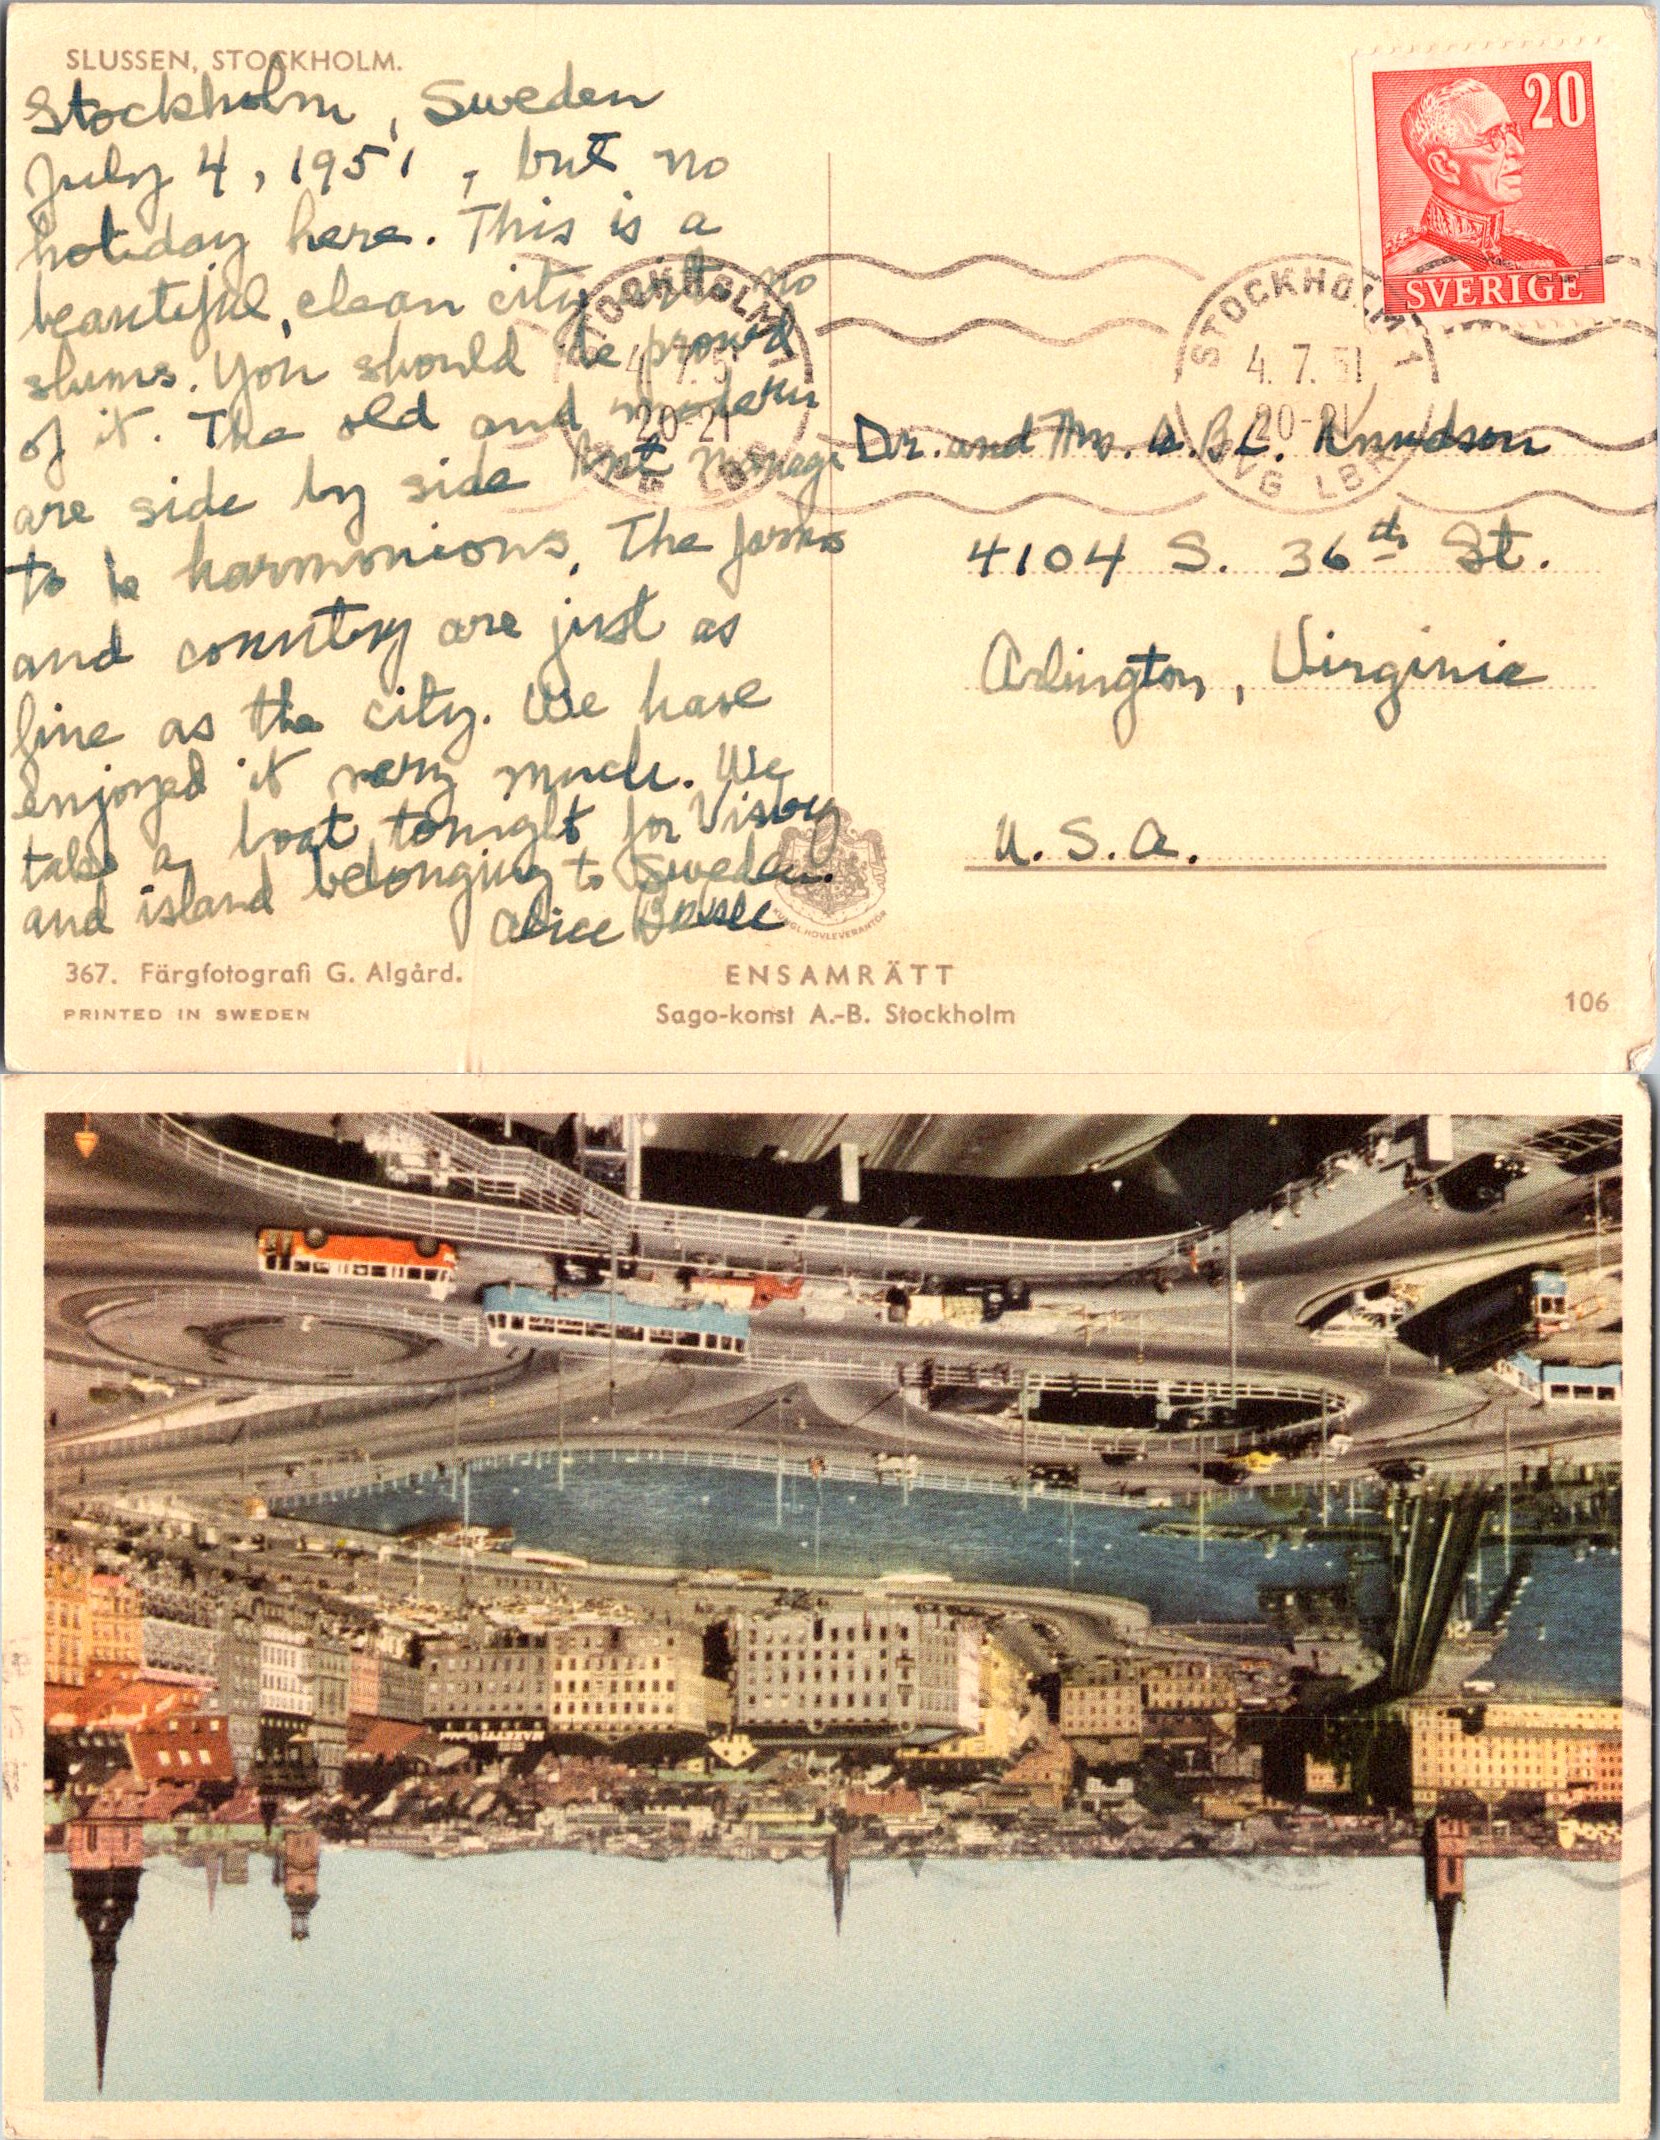 SLUSSEN, STOCKHOLM.
Stockholm, Sweden
July 4, 1951, but no
holiday here. This is a
beautiful, clean city with no
slums. You should be proud
of it. The old and modern
are side by side but manage
to be harmonious. The farms
and country are just as
fine as the city. We have
enjoyed it very much. We
take a boat tonight for Visby
and island belonging to Sweden.
Alice
367. Färgfotografi G. Algård.
PRINTED IN SWEDEN
ENSAMRÄTT
Sago-konst A.-B. Stockholm
106
KUNGL. HOVLEVERANTÖR
20
SVERIGE
STOCKHOLM 1
4.7.51
20-21
AVG LBR
STOCKHOLM 1
4.7.51
20-21
AVG LBR
Dr. and Mrs. Knudson
4104 S. 36th St.
Arlington, Virginia
U.S.A.